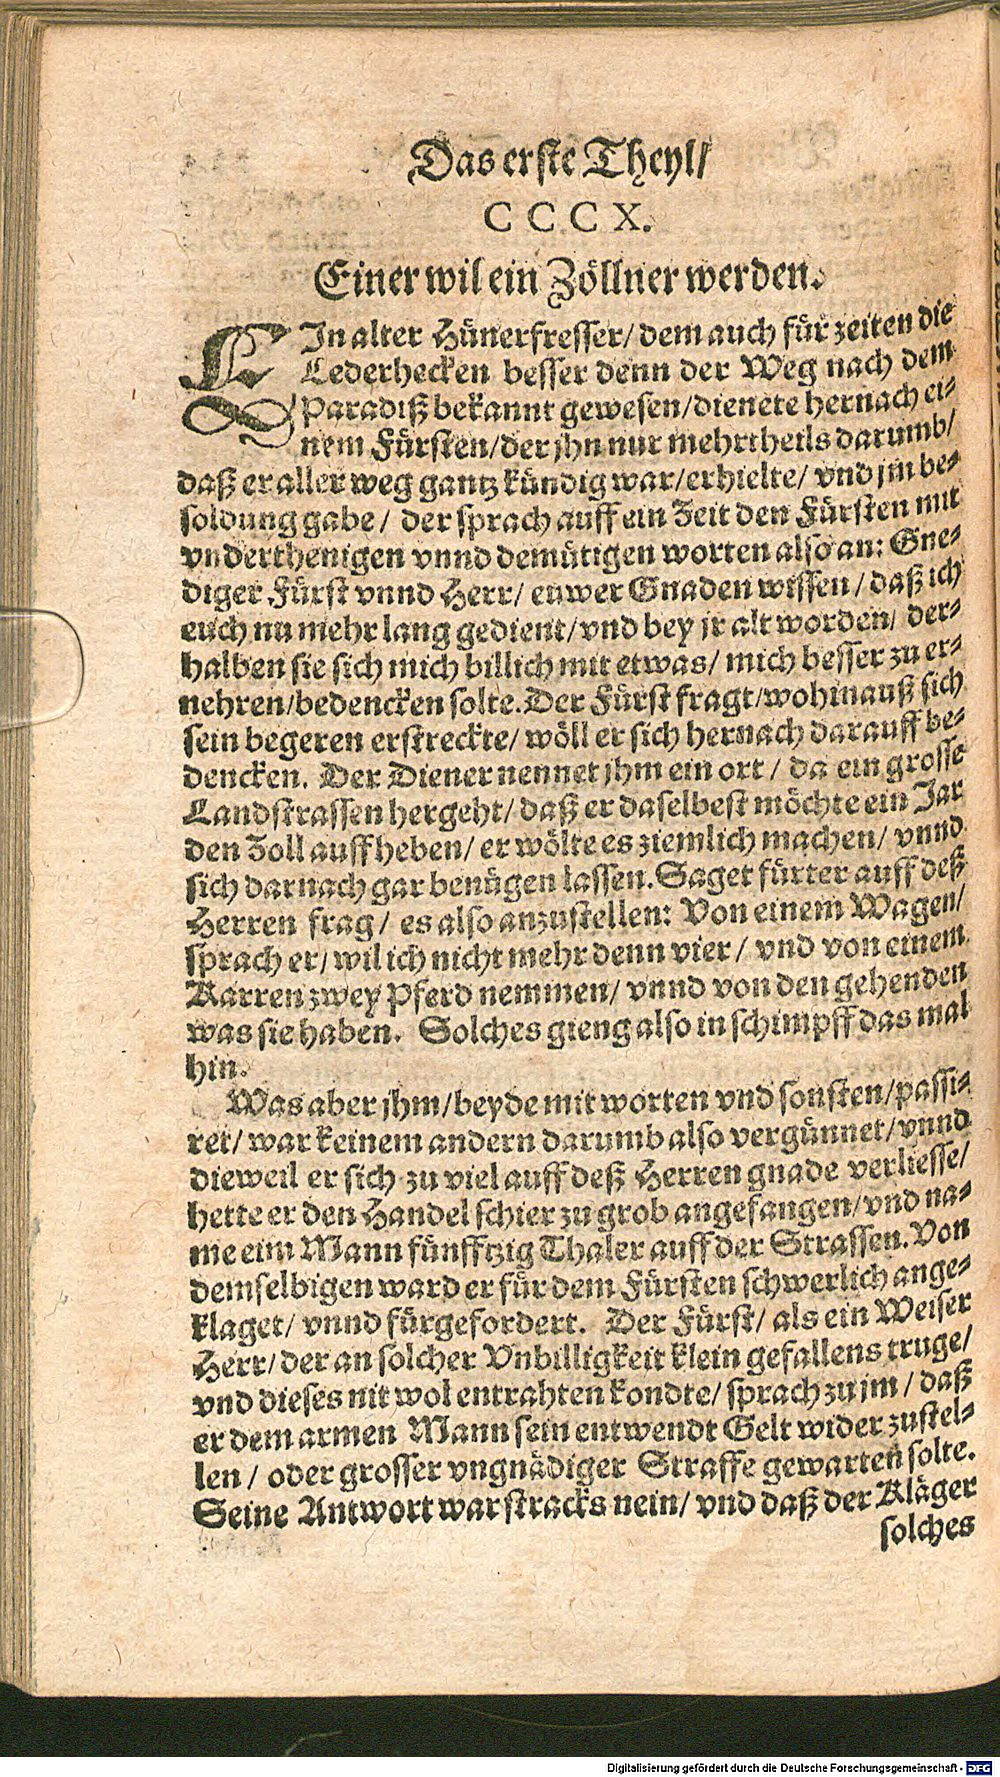 Das erste Theyl/
CCCX.
Einer wil ein Zöllner werden.
EIn alter Hünerfresser/ dem auch für zeiten die
Lederhecken besser denn der Weg nach dem
Paradiß bekannt gewesen/ dienete hernach ei-
nem Fürsten/ der jhn nur mehrtheils darumb/
daß er aller weg gantz kündig war/ erhielte/ vnd jm be-
soldung gabe/ der sprach auff ein Zeit den Fürsten mit
vnderthenigen vnnd demütigen worten also an: Gne-
diger Fürst vnnd Herr/ euwer Gnaden wissen/ daß ich
euch nu mehr lang gedient/ vnd bey jr alt worden/ der-
halben sie sich mich billich mit etwas/ mich besser zu er-
nehren/ bedencken solte. Der Fürst fragt/ wohinauß sich
sein begeren erstreckte/ wöll er sich hernach darauff be-
dencken. Der Diener nennet jhm ein ort/ da ein grosse
Landstrassen hergeht/ daß er daselbest möchte ein Jar
den Zoll auffheben/ er wölte es ziemlich machen/ vnnd
sich darnach gar benügen lassen. Saget fürter auff deß
Herren frag/ es also anzustellen: Von einem Wagen/
sprach er/ wil ich nicht mehr denn vier/ vnd von einem
Karren zwey Pferd nemmen/ vnnd von den gehenden
was sie haben. Solches gieng also in schimpff das mal
hin.
Was aber jhm/ beyde mit worten vnd sonsten/ passi-
ret/ war keinem andern darumb also vergünnet/ vnnd
dieweil er sich zu viel auff deß Herren gnade verliesse/
hette er den Handel schier zu grob angefangen/ vnd na-
me eim Mann fünfftzig Thaler auff der Strassen. Von
demselbigen ward er für dem Fürsten schwerlich ange-
klaget/ vnnd fürgefordert. Der Fürst/ als ein Weiser
Herr/ der an solcher Vnbilligkeit klein gefallens truge/
vnd dieses nit wol entrahten kondte/ sprach zu jm/ daß
er dem armen Mann sein entwendt Gelt wider zustel-
len/ oder grosser vngnädiger Straffe gewarten solte.
Seine Antwort war stracks nein/ vnd daß der Kläger
solches
Digitalisierung gefördert durch die Deutsche Forschungsgemeinschaft - DFG